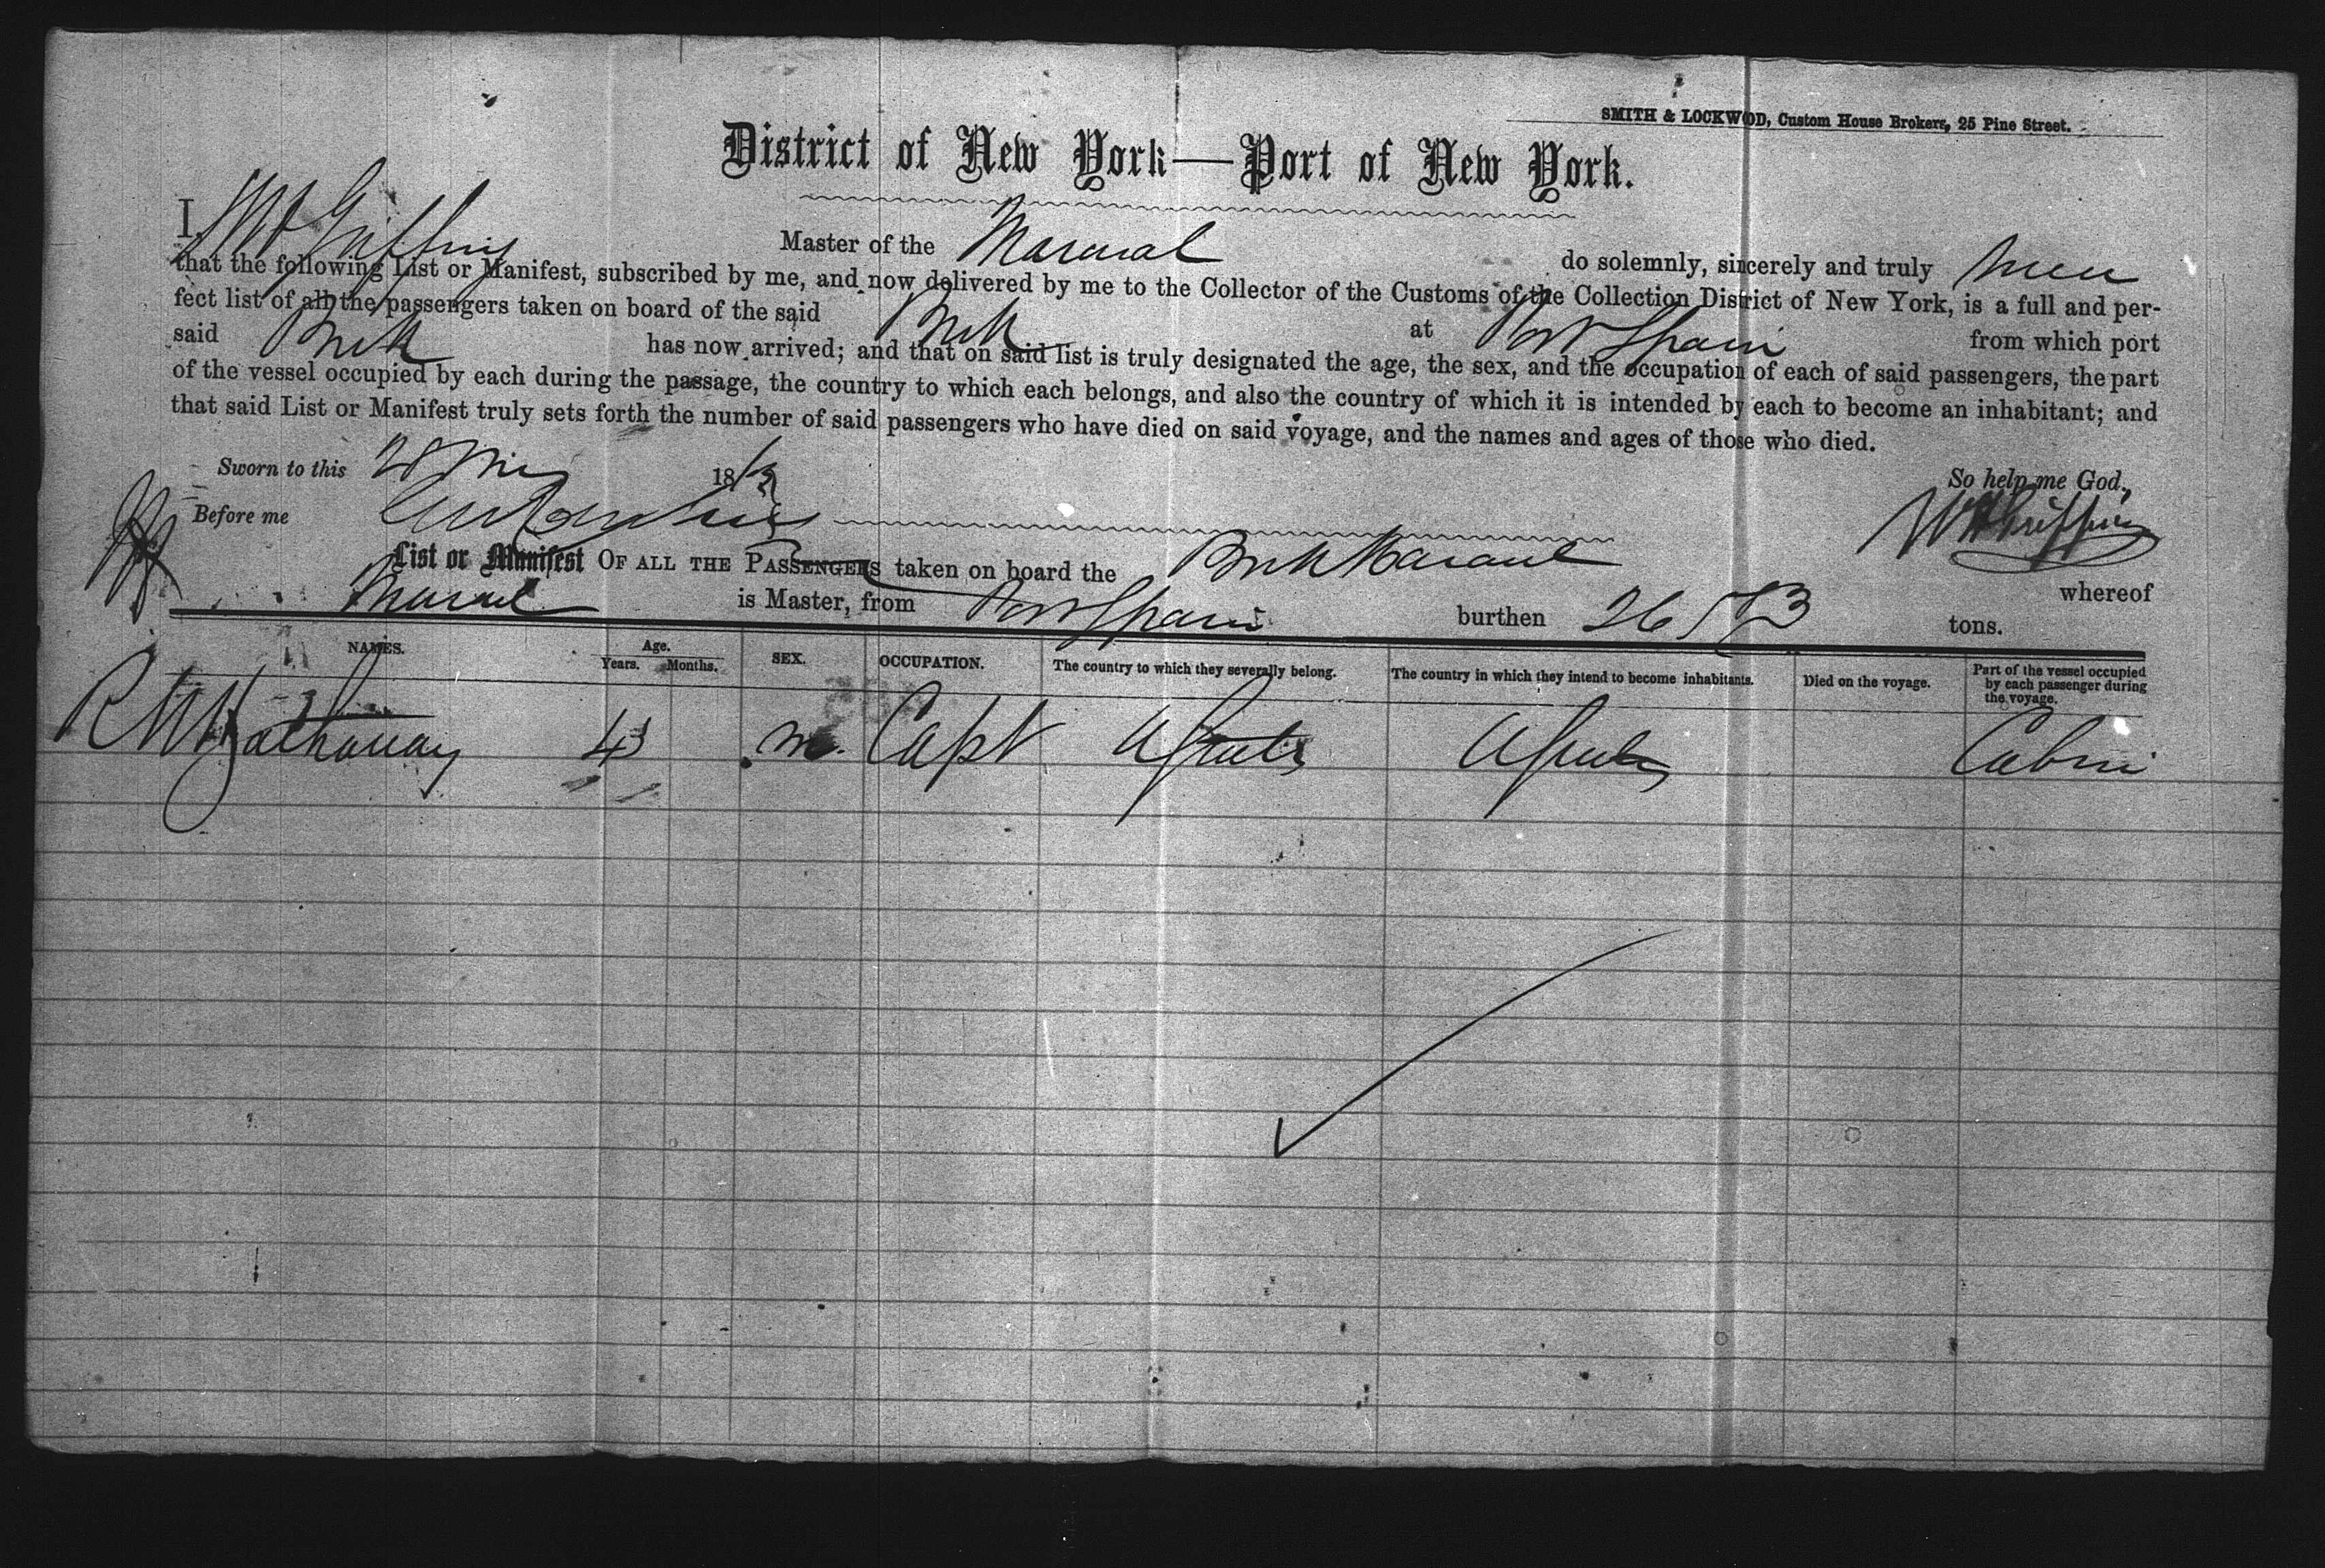 SMITH & LOCKWOD, Custom House Brokers, 25 Pine Street.
District of New York—Port of New York.
I, W H Griffing Master of the Maraval do solemnly, sincerely and truly
that the following List or Manifest, subscribed by me, and now delivered by me to the Collector of the Customs of the Collection District of New York, is a full and per-
fect list of all the passengers taken on board of the said Brik at Port Spain from which port
said Brik has now arrived; and that on said list is truly designated the age, the sex, and the occupation of each of said passengers, the part
of the vessel occupied by each during the passage, the country to which each belongs, and also the country of which it is intended by each to become an inhabitant; and
that said List or Manifest truly sets forth the number of said passengers who have died on said voyage, and the names and ages of those who died.
Sworn to this 28 18 So help me God,
Before me W H Griffing
List or Manifest OF ALL THE PASSENGERS taken on board the Brik Maraval whereof
Maraval is Master, from Port Spain burthen 265 73 tons.
NAMES. Age. Years. Months. SEX. OCCUPATION. The country to which they severally belong. The country in which they intend to become inhabitants. Died on the voyage. Part of the vessel occupied by each passenger during the voyage.
R W Hathaway 43 m. Capt U States U States Cabin